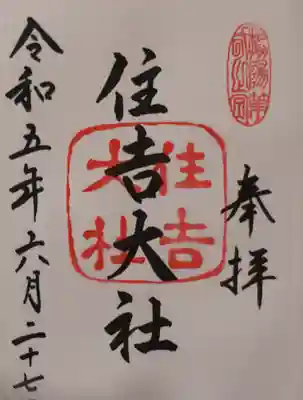 奉拝
住吉大社
住吉
大社
令和五年六月二十七